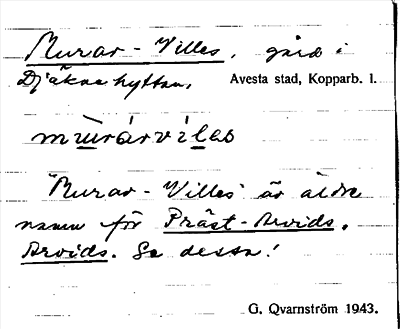 Murar-Villes, gård i
Djäknehyttan, Avesta stad, Kopparb. l.
mu̇rárvi̇las
"Murar-Villes" är äldre
namn för Präst-Arvids,
Arvids. Se dessa!
G. Qvarnström 1943.